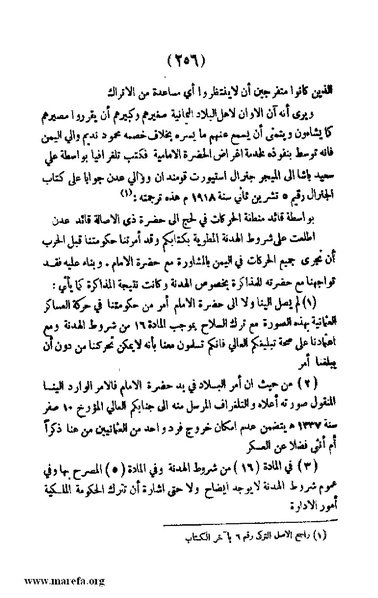 (٢٥٦)
الذين كانوا متفرجين أن لا ينتظروا أي مساعدة من الاتراك
ويرى أنه آن الاوان لاهل البلاد اليمانية صغيرهم وكبيرهم أن يقرروا مصيرهم
كما يشاءون ويتمنى أن يسمع عنهم ما يسره بخلاف خصمه محمود نديم والي اليمن
فانه توسط بنفوذه لخدمة اغراض الحضرة الامامية فكتب تلغرافيا بواسطة علي
سعيد باشا الى الميجر جنرال استيورت قومندان ووالي عدن جوابا على كتاب
الجنرال رقيم ٥ تشرين ثاني سنة ١٩١٨ م هذه ترجمته : (١)
بواسطة قائد منطقة الحركات في لحج الى حضرة ذي الاصالة قائد عدن
اطلعت على شروط الهدنة المطوية بكتابكم وقد أمرتنا حكومتنا قبل الحرب
أن تجرى جميع الحركات في اليمن بالمشاورة مع حضرة الامام . وبناء عليه فقد
تواجهنا مع حضرته للمذاكرة بخصوص الهدنة وكانت نتيجة المذاكرة كما يأتي :
(١) لم يصل الينا ولا الى حضرة الامام أمر من حكومتنا في حركة العساكر
العثمانية بهذه الصورة مع ترك السلاح بموجب المادة ١٦ من شروط الهدنة ومع
اعتمادنا على صحة تبليغكم العالي فانكم تسلمون معنا بأنه لا يمكن تحركنا من دون أن
يبلغنا أمر
(٢) من حيث ان أمر البلاد في يد حضرة الامام فالامر الوارد الينا
المنقول صورته أعلاه والتلغراف المرسل منه الى جنابكم العالي المؤرخ ١٠ صفر
سنة ١٣٣٧ هـ يتضمن عدم امكان خروج فرد واحد من العثمانيين من هنا ذكراً
أم أنثى فضلا عن العسكر
(٣) في المادة (١٦) من شروط الهدنة وفي المادة (٥) المصرح بها وفي
عموم شروط الهدنة لا يوجد ايضاح ولا حتى اشارة أن تترك الحكومة الملكية
أمور الادارة
(١) راجع الاصل التركي رقم ٦ بآخر الكتاب
www.marefa.org